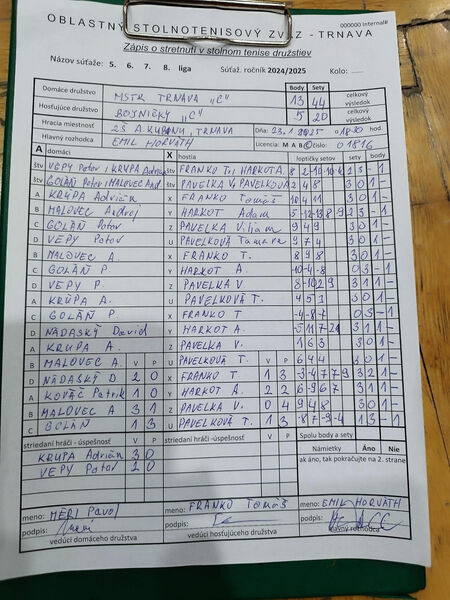 OBLASTNÝ STOLNOTENISOVÝ ZVÄZ - TRNAVA
000000 Internal#
Zápis o stretnutí v stolnom tenise družstiev
Názov súťaže: 5. 6. 7. 8. liga Súťaž. ročník 2024/2025 Kolo:
Body Sety
Domáce družstvo MSTK TRNAVA "C" 13 44 celkový výsledok
Hosťujúce družstvo BOJNIČKY "C" 5 20 celkový výsledok
Hracia miestnosť ZŠ A. KUBINU, TRNAVA Dňa: 23.1.2025 o 18:30 hod.
Hlavný rozhodca EMIL HORVÁTH Licencia: M A B C číslo: 01816
A domáci X hostia loptičky setov sety body
štv VEPY Peter, KRUPA Adrián štv FRANKO T., HARKOT A.
štv GOLÁŇ Peter, MALOVEC And. štv PAVELKA V., PAVELKOVÁ 2 4 8 3 0 1 -
A KRUPA Adrián X FRANKO Tomáš 10 4 11 3 0 1 -
B MALOVEC Andrej Y HARKOT Adam
C GOLÁŇ Peter Z PAVELKA Viliam 9 4 9 3 0 1 -
D VEPY Peter U PAVELKOVÁ Tamara 9 7 4 3 0 1 -
B MALOVEC A. X FRANKO T. 8 9 8 3 0 1 -
C GOLÁŇ P. Y HARKOT A. -10 -4 -8 0 3 - 1
D VEPY P. Z PAVELKA V 8 -10 2 9 3 1 1 -
A KRUPA A. U PAVELKOVÁ T. 4 5 3 3 0 1 -
C GOLÁŇ P. X FRANKO T -4 -8 -7 0 3 - 1
D NÁDASKÝ David Y HARKOT A. 3 1 1 -
A KRUPA A. Z PAVELKA V. 1 6 3 3 0 1 -
B MALOVEC A. V P U PAVELKOVÁ T. V P 6 4 4 3 0 1 -
D NÁDASKÝ D. 2 0 X FRANKO T. 1 3 -3 -4 7 7 9 3 2 1 -
A KOVÁČ Patrik 1 0 Y HARKOT A. 2 2 6 -9 6 7 3 1 1 -
B MALOVEC A 3 1 Z PAVELKA V. 0 4 9 4 8 3 0 1 -
C GOLÁŇ 1 3 U PAVELKOVÁ T. 1 3 -8 7 -9 -4 1 3 - 1
striedaní hráči - úspešnosť V P striedaní hráči - úspešnosť V P Spolu body a sety
KRUPA Adrián 3 0 Námietky Áno Nie
VEPY Peter 2 0 ak áno, tak pokračujte na 2. strane
meno: MERI Pavol meno: FRANKO Tomáš meno: EMIL HORVÁTH
podpis: podpis: podpis:
vedúci domáceho družstva vedúci hosťujúceho družstva hlavný rozhodca